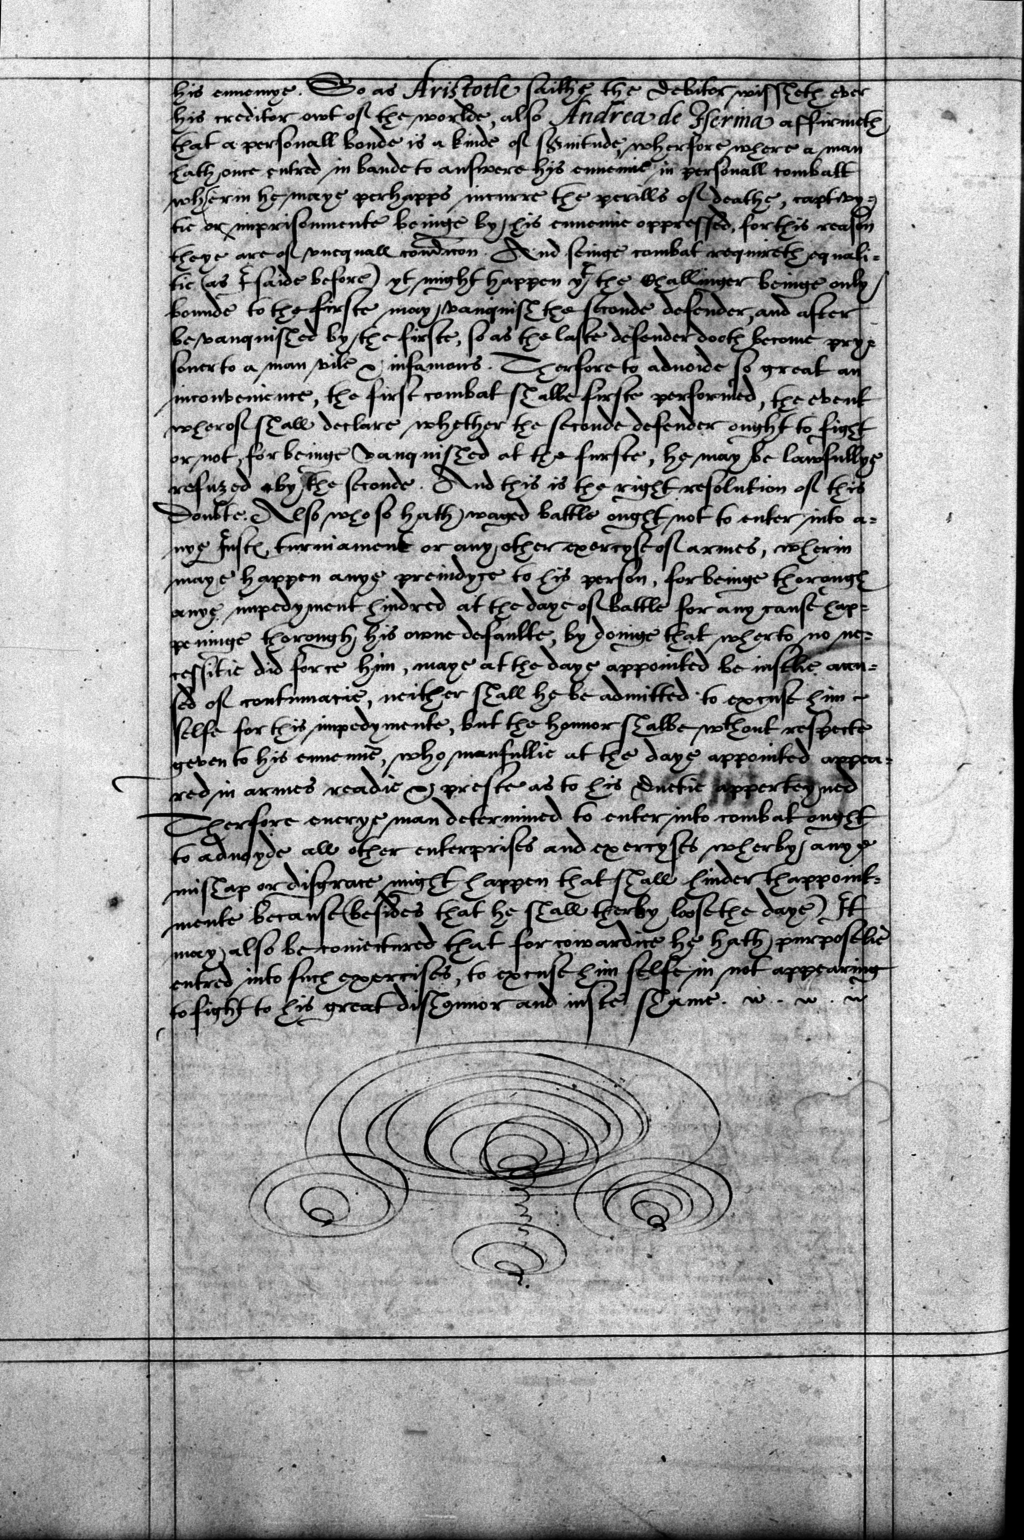 his ennemye. So as Aristotle saithe the debitor wissheth ever
his creditor owt of the worlde, also Andrea de Iserina affirmeth
that a personall bonde is a kinde of servitude, wherfore where a man
hath once entred in bande to answere his ennemie in personall combatt
wherin he maye perhapps incurre the perills of deathe, captivy-
tie or imprisonmente beinge by his ennemie oppressed, for this reason
theye are of vnequall condicon. And seinge combat requireth equali-
tie (as I saide before) yt might happen yt the Challinger beinge only
bounde to the firste may vanquish the seconde defender, and after
be vanquished by the firste, so as the laste defender dooth become pry-
soner to a man vile & infamous. Therfore to advoide so great an
inconvenience, the first combat shalbe firste performed, the event
wherof shall declare whether the seconde defender ought to fight
or not, for beinge vanquished at the furste, he may be lawfullye
refuzed by the seconde. And this is the right resolution of this
doubte. Also who so hath waged battle ought not to enter into a-
nye Iusts, turniament or any other exercyse of armes, wherin
maye happen anye preiudyce to his person, for beinge thorough
anye impedyment hindred at the daye of battle for any cause hap-
peninge thorough his owne defaulte, by doinge that wherto no ne-
cessitie did force him, maye at the daye appointed be iustlie accu-
sed of contumacie, neither shall he be admitted to excuse him
selfe for this impedymente, but the honnor shalbe wthout respecte
geven to his ennemie, who manfullie at the daye appointed appea-
red in armes readie & preste as to his duetie apperteyned
Therfore euerye man determined to enter into combat ought
to advoyde all other enterprises and exercyses wherby anye
mishap or disgrace might happen that shall hinder thappoint-
mente because (besides that he shall therby loose the daye) It
may also be coniectured that for cowardice he hath purposelie
entred into such exercises, to excuse him selfe in not appearing
to fight to his great dishonnor and iuste shame.